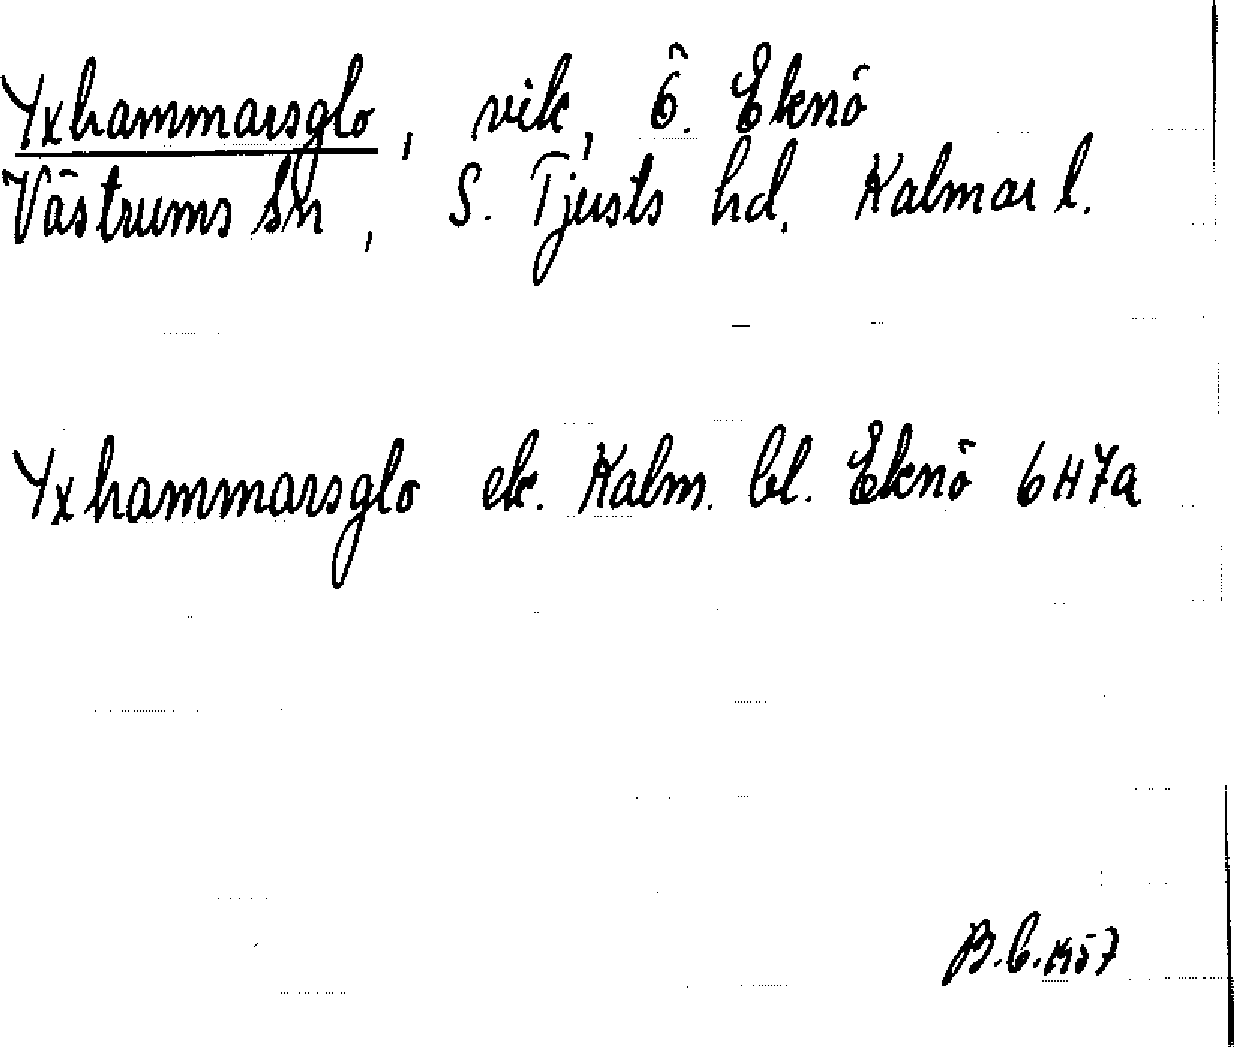 Yxhammarsglo, vik, Ö. Eknö
Västrums sn, S. Tjusts hd. Kalmar l.
Yxhammarsglo ek. Kalm. bl. Eknö 6H7a
1957